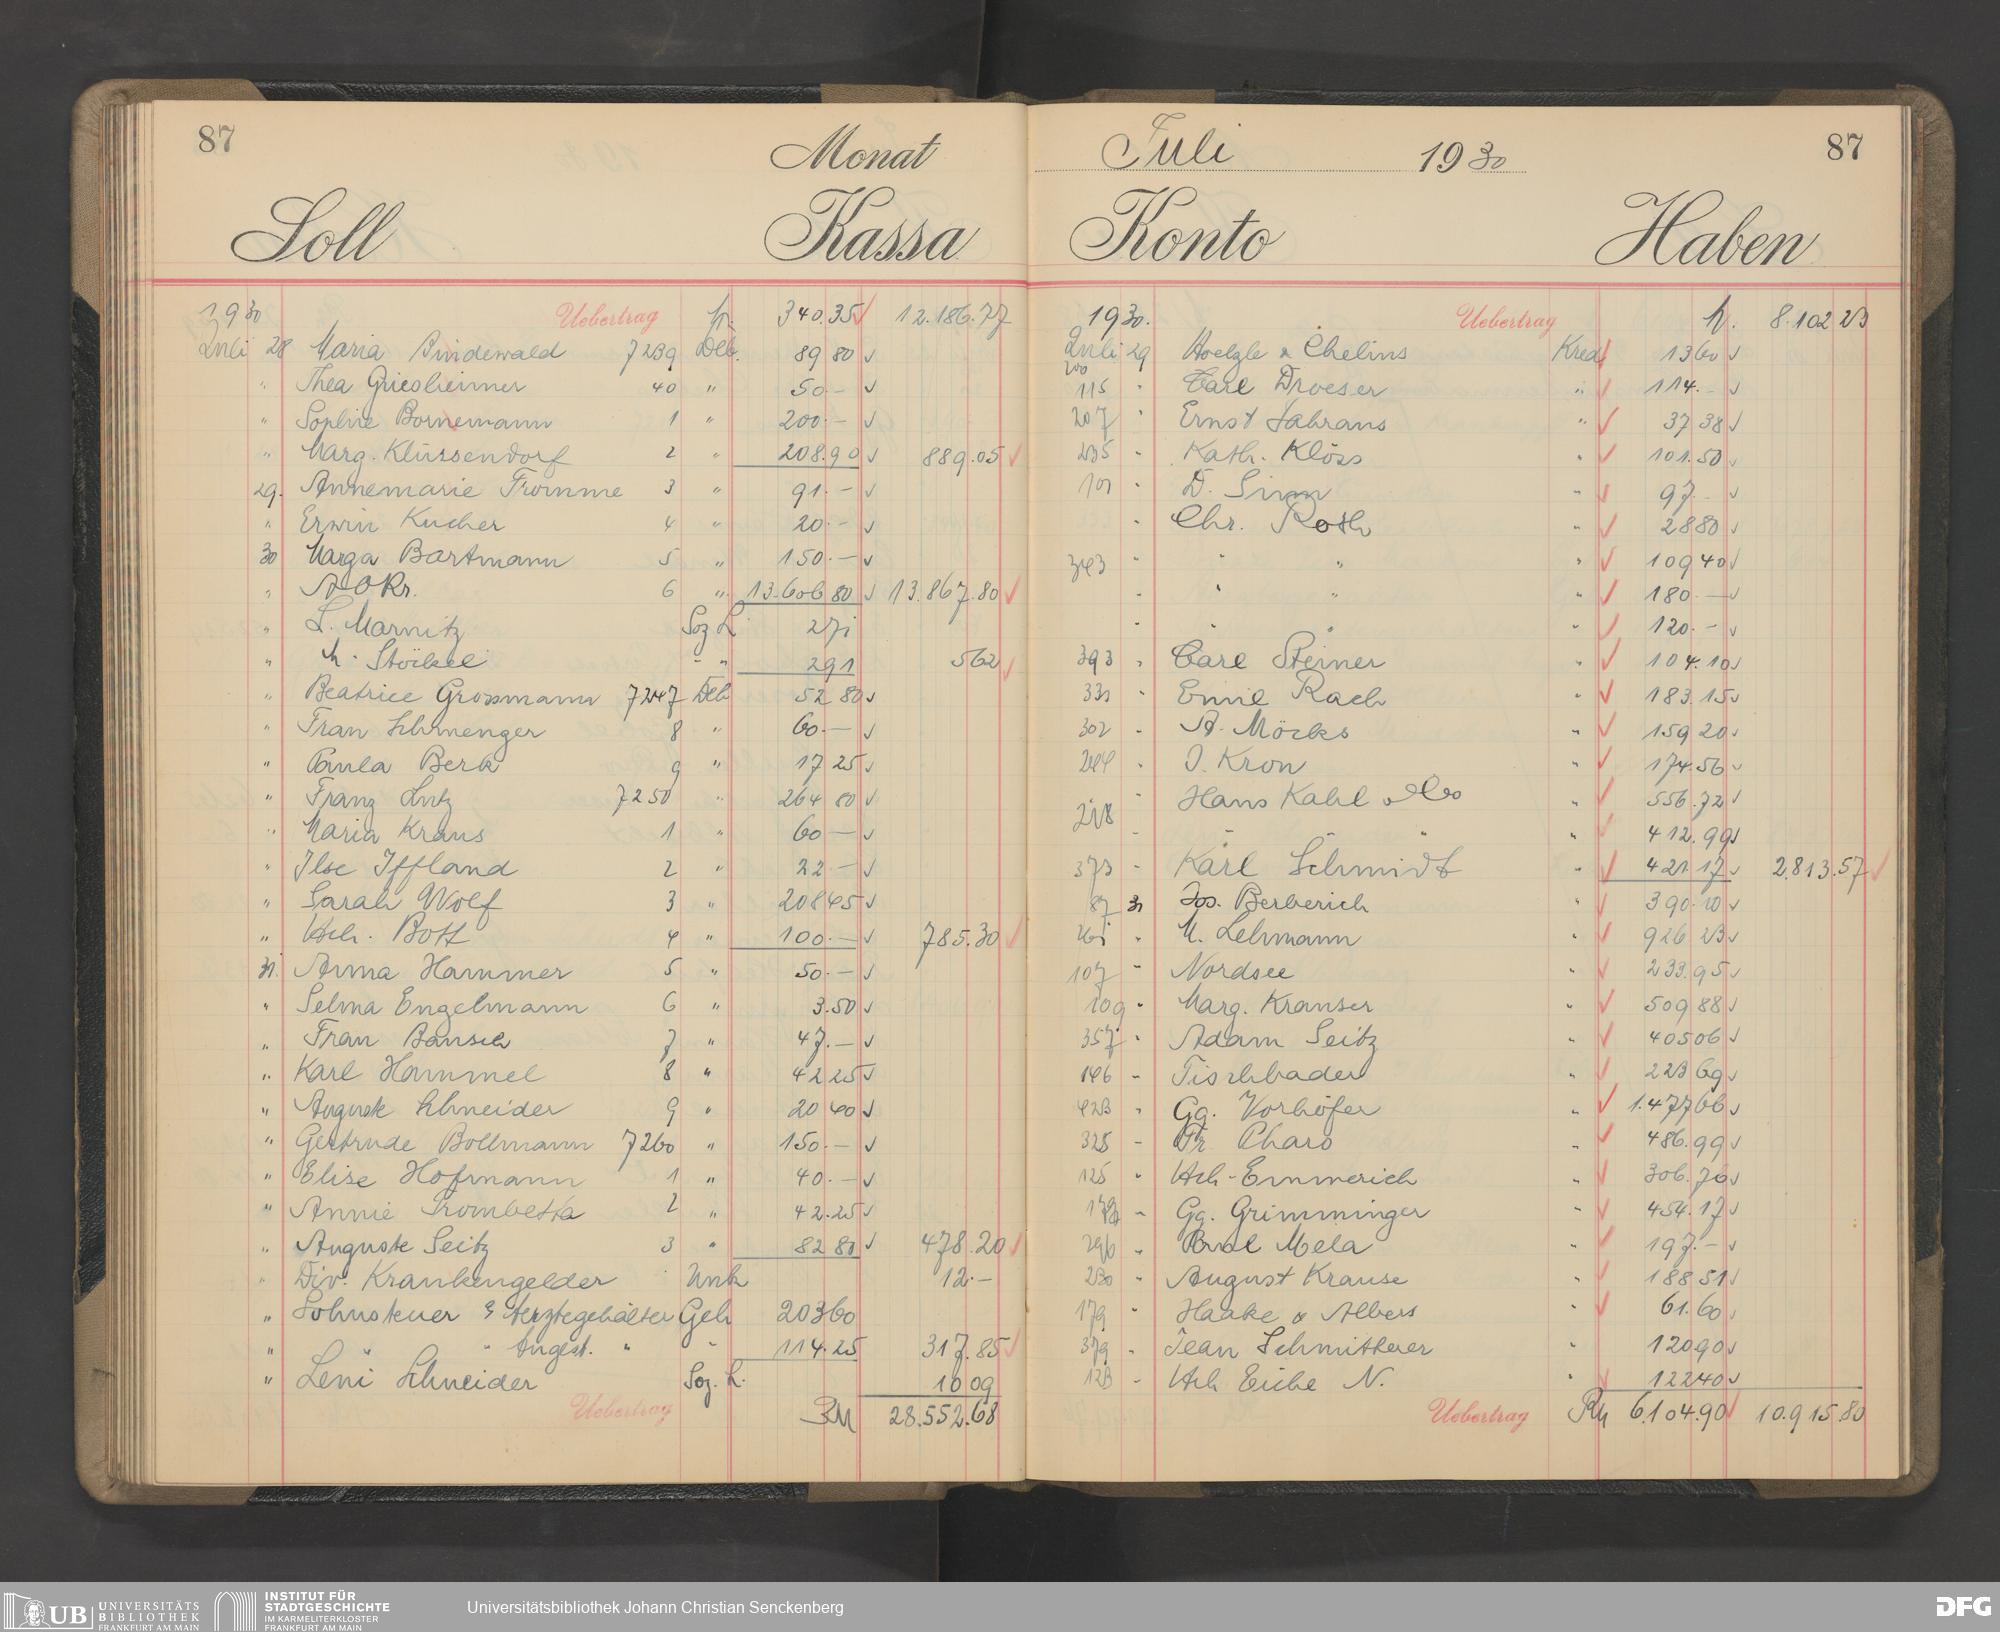 87
Monat
Soll Kassa
1930 Uebertrag 340.35 12.186.77
Juli 28 Maria Bindewald 7239 Deb. 89 80
" Thea Griesheimer 40 " 50.—
" Sophie Bornemann 1 " 200.—
" Marg. Klüssendorf 2 " 208.90 889.05
29. Annemarie Fromme 3 " 91.—
" Erwin Kucher 4 " 20.—
30 Marga Bartmann 5 " 150.—
" A O Kr. 6 " 13.606 80 13.867.80
" L. Marnitz Soz L 271
" Stöckel " " 291 562
" Beatrice Grossmann 7247 Deb 52 80
" Frau Schmenger 8 " 60.—
" Paula Berk 9 " 17 25
" Franz Lutz 7250 " 264 80
" Maria Kraus 1 " 60 —
" Ilse Iffland 2 " 22 —
" Sarah Wolf 3 " 208 45
" Hch. Bott 4 " 100.— 785.30
31. Anna Hammer 5 " 50.—
" Selma Engelmann 6 " 3.50
" Frau Bansch 7 " 47.—
" Karl Hammel 8 " 42 25
" Auguste Schneider 9 " 20 40
" Gertrude Bollmann 7260 " 150.—
" Elise Hofmann 1 " 40.—
" Annie Trombetta 2 " 42.25
" Auguste Seitz 3 " 82 80 478.20
" Div. Krankengelder Unk 12.—
" Lohnsteuer Aerztegehälter Geh 203 60
" " " Angest. " " 114.25 317.85
" Leni Schneider Soz. L. 10 09
Uebertrag RM 28.552.68
Juli 1930
87
Konto Haben
1930. Uebertrag 8.102 23
Juli 29 Hoelzle & Chelius Kred 13 60
115 " Carl Droeser " 114.—
207 " Ernst Jahrans " 37 38
235 " Kath. Klöss " 101.50
101 " D. Simm " 97.—
" Chr. Roth " 28 80
343 " " " " 109 40
" " " " 180.—
" " " " 120.—
393 " Carl Steiner " 104.10
331 " Emil Rach " 183.15
302 " A. Möcks " 159 20
244 " J. Kron " 174.56
218 " Hans Kahl & Co " 556.72
" " " " 412.99
373 " Karl Schmidt " 421.17 2.813.57
87 31 Jos. Berberich " 390.10
261 " M. Lehmann " 926 23
107 " Nordsee " 233.95
109 " Marg. Kranser " 509 88
357 " Adam Seitz " 405 06
146 " Tischbader " 223 69
423 " Gg. Vorhöfer " 1.477 66
325 " Fr. Charo " 486.99
125 " Hch. Emmerich " 306.76
" Gg. Grimminger " 454.17
296 " Paul Mela " 197.—
230 " August Krause " 188 51
179 " Haake & Albers " 61.60
379 " Jean Schmitterer " 120 90
123 " Hch Eiche N. " 122 40
Uebertrag RM 6.104.90 10.915.80
UB UNIVERSITÄTS BIBLIOTHEK FRANKFURT AM MAIN
INSTITUT FÜR STADTGESCHICHTE IM KARMELITERKLOSTER FRANKFURT AM MAIN
Universitätsbibliothek Johann Christian Senckenberg
DFG